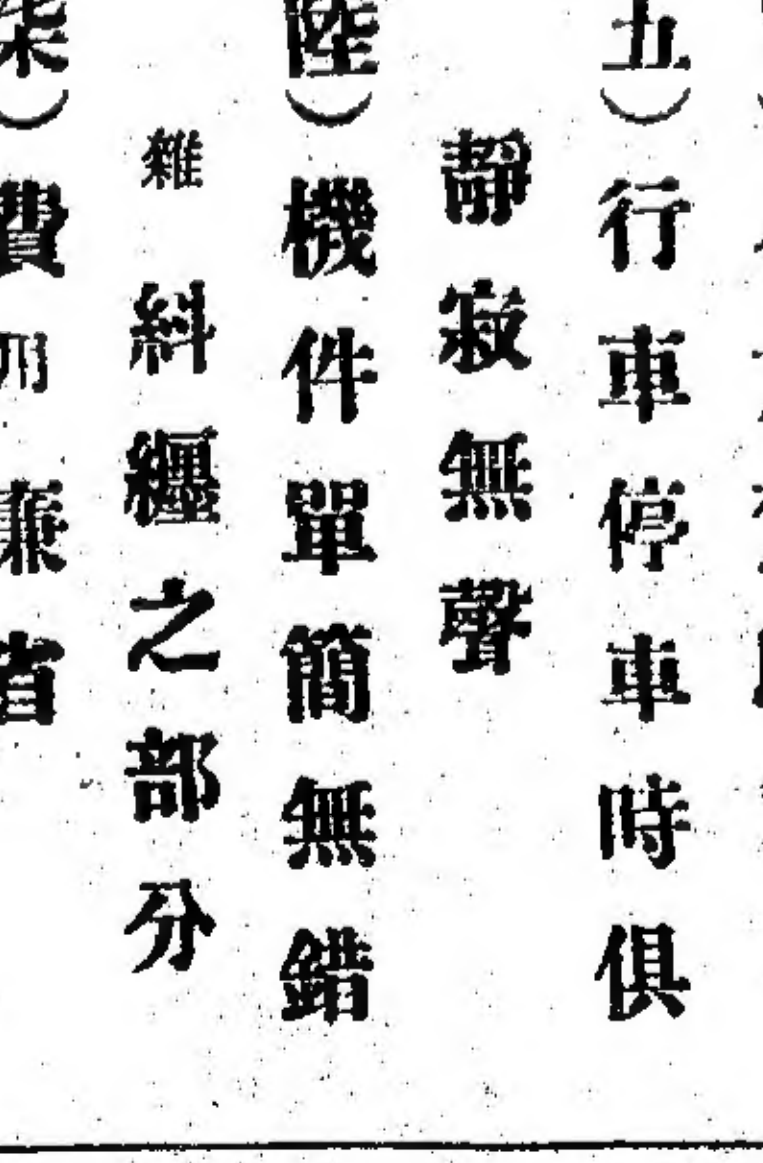 五）行車停車時俱
靜寂無聲
陸）機件單簡無錯
雜糾纏之部分
柒）費用廉省